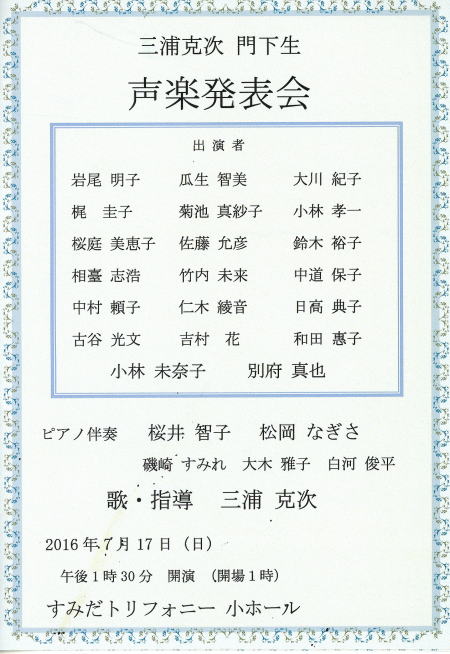 三浦克次 門下生
声楽発表会
出 演 者
岩尾 明子 瓜生 智美 大川 紀子
梶 圭子 菊池 真紗子 小林 孝一
桜庭 美恵子 佐藤 允彦 鈴木 裕子
相臺 志浩 竹内 未来 中道 保子
中村 頼子 仁木 綾音 日高 典子
古谷 光文 吉村 花 和田 惠子
小林 未奈子 別府 真也
ピアノ伴奏 桜井 智子 松岡 なぎさ
磯崎 すみれ 大木 雅子 白河 俊平
歌・指導 三浦 克次
2016年7月17日（日）
午後1時30分 開演 （開場1時）
すみだトリフォニー 小ホール